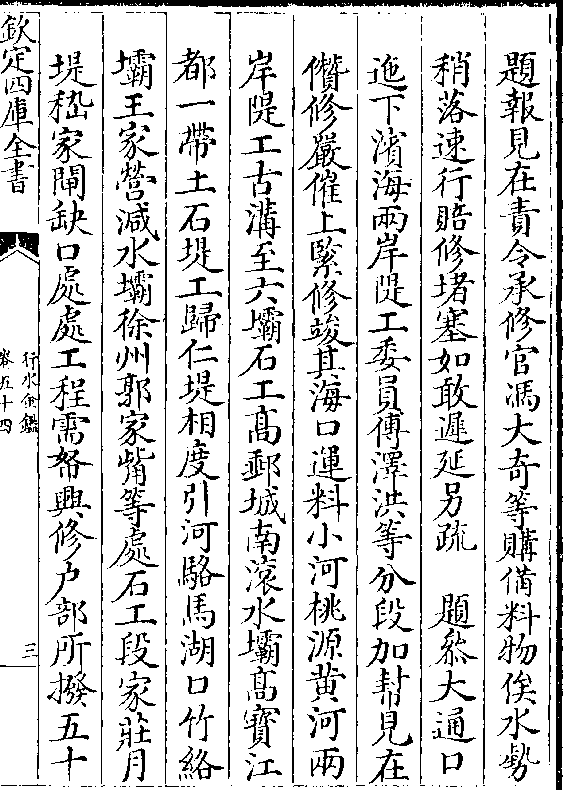 題報見在責令承修官馮大奇等購備料物俟水勢
稍落速行賠修堵塞如敢遲延另疏　題叅大通口
迤下濱海兩岸隄工委員傅澤洪等分段加幫見在
儹修嚴催上緊修竣其海口運料小河桃源黄河兩
岸隄工古溝至六壩石工髙郵城南滚水壩髙寳江
都一帶土石堤工歸仁堤相度引河駱馬湖口竹絡
壩王家營减水壩徐州郭家嘴等處石工段家莊月
堤嵇家閘缺口處處工程需帑興修户部所撥五十
欽定四庫全書
行水金鑑
卷五十四
三